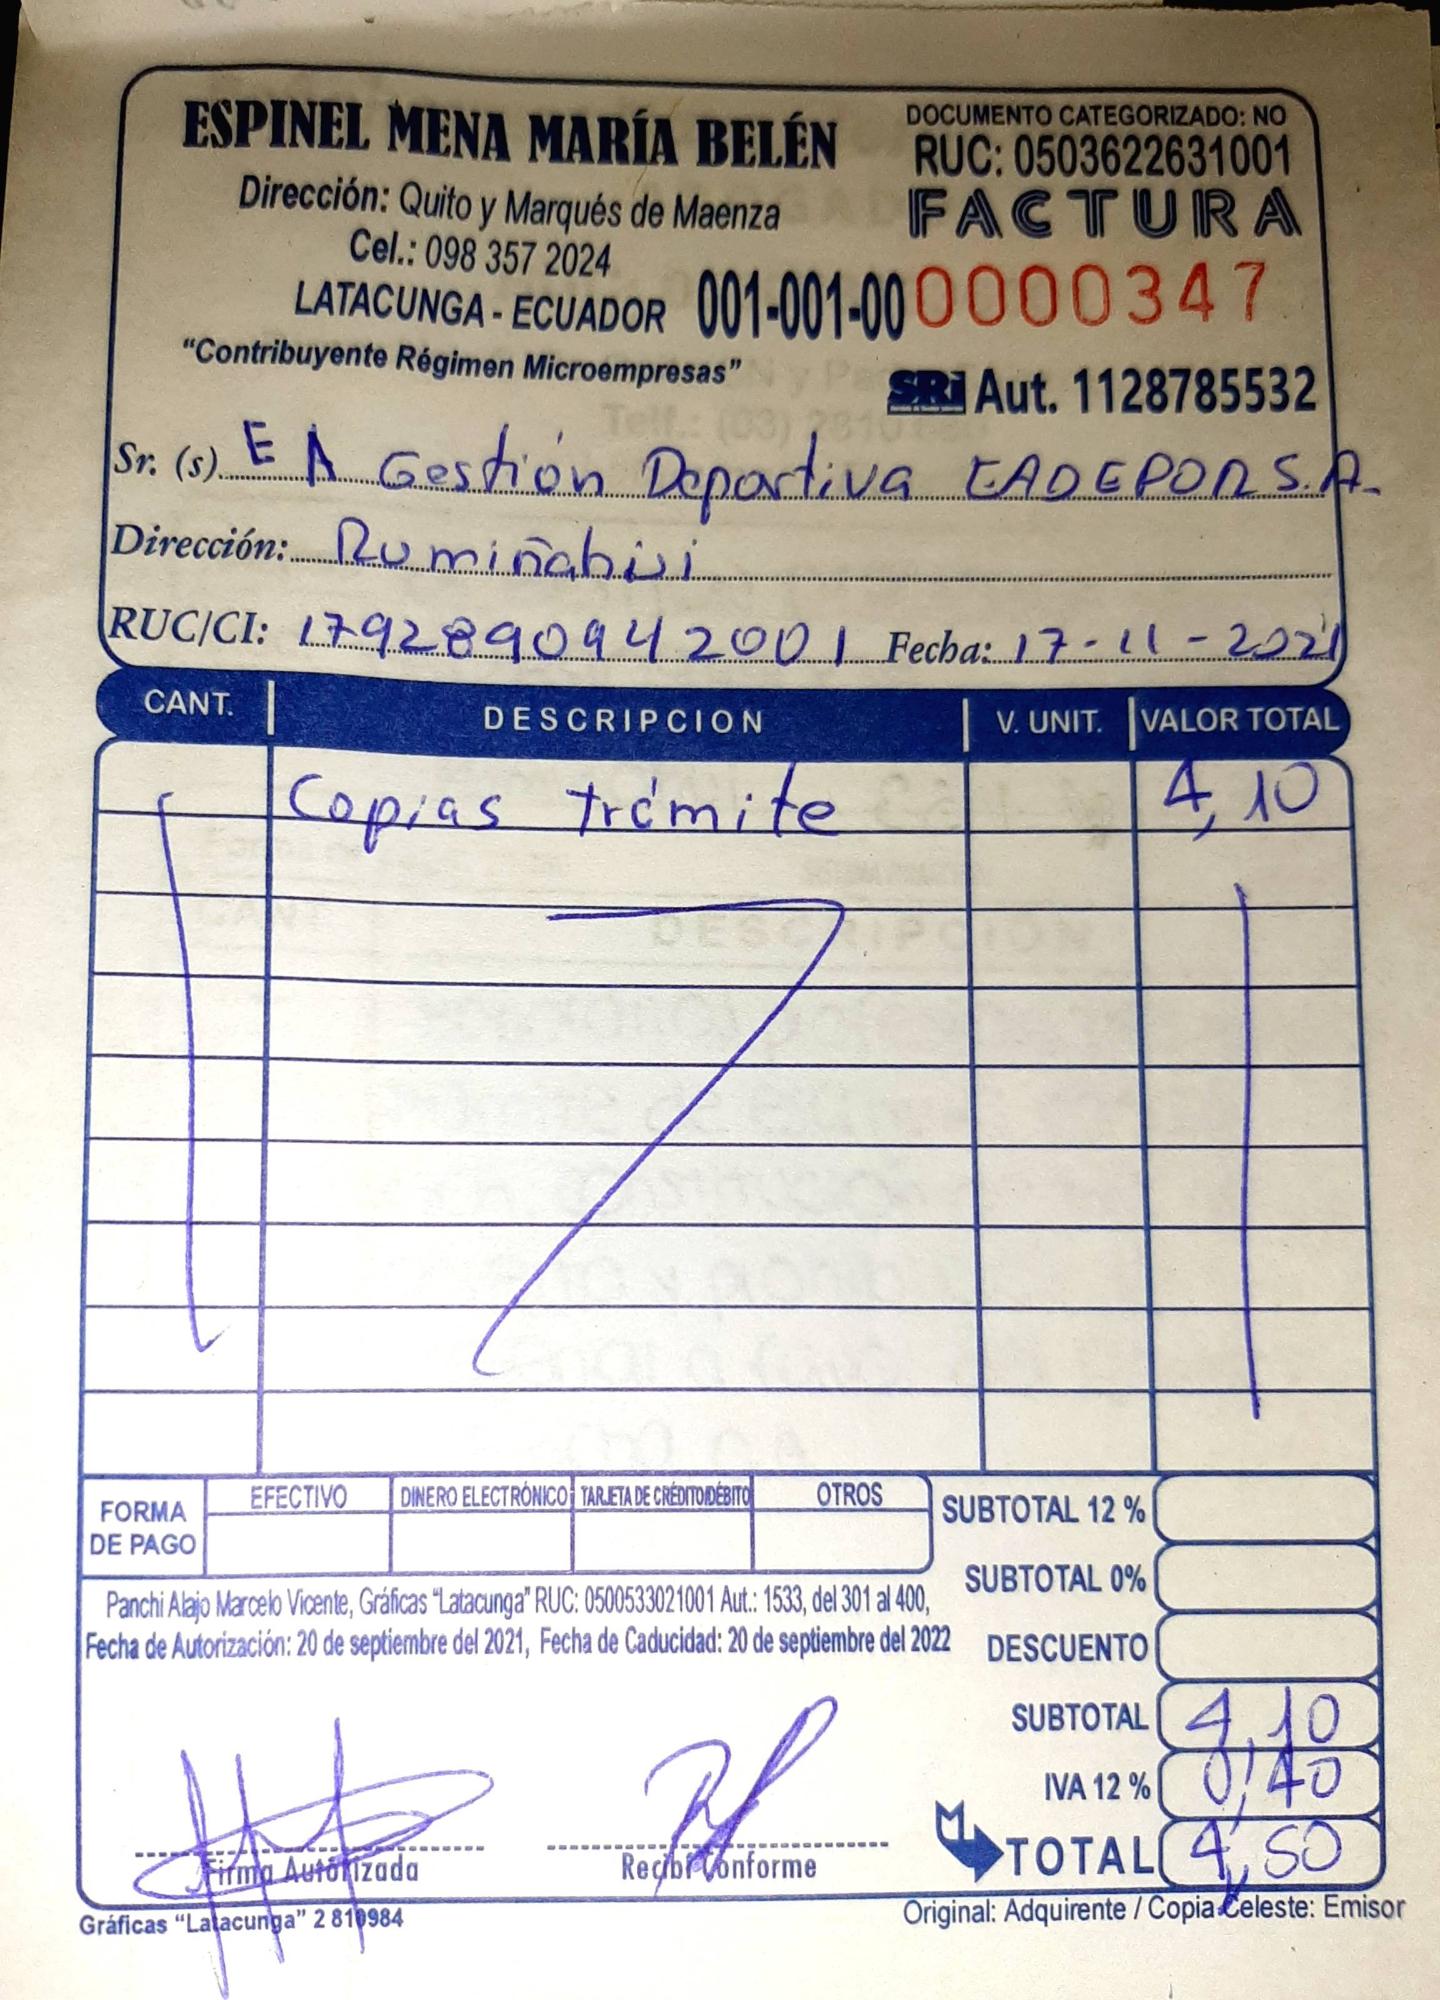 ESPINEL MENA MARÍA BELÉN
Dirección: Quito y Marqués de Maenza
Cel.: 098 357 2024
LATACUNGA - ECUADOR
"Contribuyente Régimen Microempresas"
DOCUMENTO CATEGORIZADO: NO
RUC: 0503622631001
FACTURA
001-001-00 0000347
SRi Aut. 1128785532
Sr. (s) E A Gestión Deportiva EADEPOR S.A.
Dirección: Rumiñahui
RUC/CI: 1792890942001 Fecha: 17-11-2021
CANT. DESCRIPCION V. UNIT. VALOR TOTAL
Copias trámite 4,10
FORMA DE PAGO EFECTIVO DINERO ELECTRÓNICO TARJETA DE CRÉDITO/DÉBITO OTROS
SUBTOTAL 12 %
SUBTOTAL 0%
DESCUENTO
SUBTOTAL 4,10
IVA 12 % 0,40
TOTAL 4,50
Panchi Alajo Marcelo Vicente, Gráficas "Latacunga" RUC: 0500533021001 Aut.: 1533, del 301 al 400,
Fecha de Autorización: 20 de septiembre del 2021, Fecha de Caducidad: 20 de septiembre del 2022
Firma Autorizada Recibí Conforme
Gráficas "Latacunga" 2 810984
Original: Adquirente / Copia Celeste: Emisor